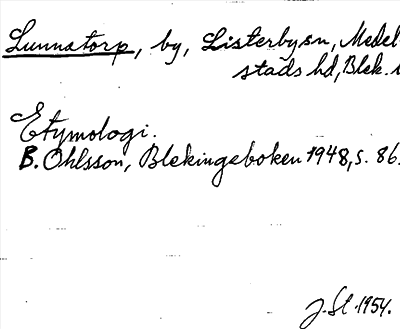 Lunnatorp, by, Listerby sn, Medel
stads hd, Blek. l
Etymologi.
B. Ohlsson, Blekingeboken 1948, s. 86.
J. Sl. 1954.